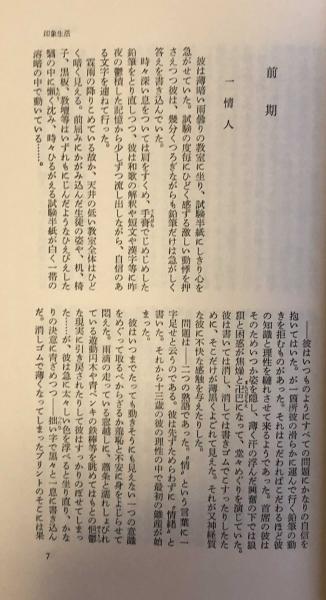 印象生活
前期
一 情人
彼は薄暗い雨曇りの教室に坐り、試験半紙にしきり心を
急がせていた。試験の度毎にひどく感ずる激しい動悸を押
さえつつ彼は、幾分くつろぎながらも鉛筆だけは急がしく
答えを書き込んでいた。
時々深い息をついては肩をすくめ、手膏でじめじめした
鉛筆をとり直しつつ、彼は和歌の解釈や短文や漢字等に昨
夜の鬱積した記憶から少しずつ流し出しながら、自信のあ
る文字を連ねて行った。
霖雨の降りこめている故か、天井の低い教室全体はひど
く暗く見える。前屈みにかがみ込んだ生徒の姿や、机、椅
子、黒板、教壇等はいずれもにじんだようなひえびえした
翳の中に懶く沈み、時々ひるがえる試験半紙が白く一帯の
溶暗の中で動いている……。
――彼はいつものようにすべての問題にかなりの自信を
抱いてはいた。が一箇所彼の滑らかに運んで行く鉛筆の動
きを拒むものがあった。それはこだわればこだわるほど彼
の知識と理性を縺れさせて来るようであった。首席の彼は
そのためいつか姿を隠し、薄く汗の浮んだ興奮の下では狼
狽と困惑が焦燥と卍巴になって、堂々めぐりを演じていた。
彼は書いては消し、消しては書きゴムでこすったりしたた
めに、そこだけが薄黒くよごれて見えた。それが又神経質
な彼に不快な感触を与えたりした。
問題は――二つの熟語であった。“情”という言葉に一
字足せと云うのである。彼は先ずためらわずに“情緒”と
書いた。それから十三歳の彼の理性の中で最初の難産が始
まった。
彼はいつまでたっても動きそうにも見えない一つの意識
をめぐって或るべからざる羞恥と不安に身をよじらせて
悶えた。雨滴の走っている窓越しに、蕭条と濡れしょびれ
ている遊動円木や青ペンキの鉄棒等を眺めてはもとの悒鬱
な現実に引き戻されたりして彼はすっかりのぼせてしまっ
た……が、彼は急に太々しい色を浮べると坐り直り、かな
りの決意に青ざめつつ――拙い字で黒々と一息に書き込ん
だ。消しゴムで薄くなってしまったプリントのそこには果
7